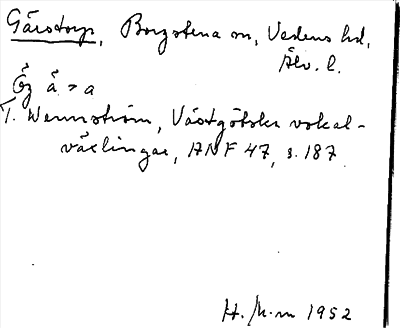 Gärstorp, Borgstena sn, Vedens hd,
Älv. l.
Ög ä > a
T. Wennström, Västgötska vokal-
växlingar, ANF 47, s. 187
H. M-m 1952